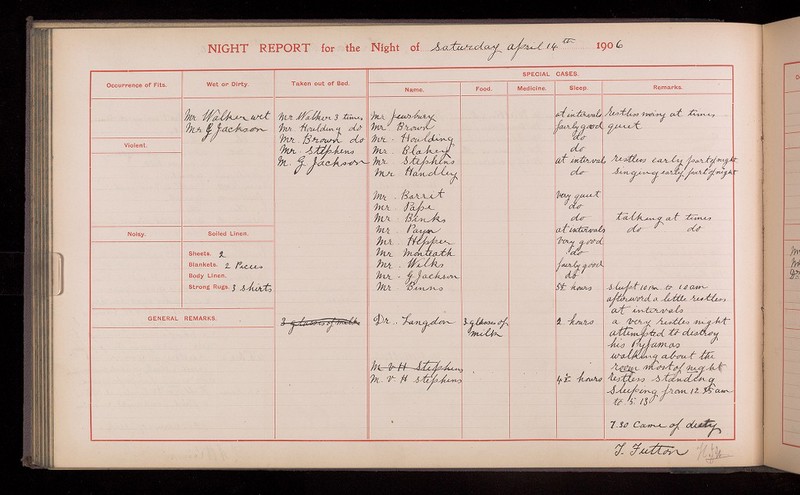 NIGHT REPORT for the Night of Saturday April 14th 1906
SPECIAL CASES.
Occurrence of Fits. Wet or Dirty. Taken out of Bed. Name. Food. Medicine. Sleep. Remarks.
Mr Walker wet Mr Walker 3 times Mr Jewsbury at intervals restless noisy at times
Mr G Jackson Mr. Houlding do Mr Brown fairly good quiet
Mr. Brown do Mr. Houlding do
Violent. Mr. Stephens Mr Blakey do
M. G. Jackson Mr. Stephens at intervals restless early part of night
Mr. Handley do Singing early part of night
Mr. Barrit Very quiet
Mr. Pape do
Mr. Binks do talking at times
Noisy. Soiled Linen. Mr Payn at intervals do do
Mr. Hepper Very good
Sheets. 2 Mr. Monteath do
Blankets. 2 Pieces Mr. Wilks fairly good
Body Linen. Mr. G Jackson do
Strong Rugs. 3 Shirts Mr Binns 5½ hours slept 10 p.m. to 10 am
afterward a little restless
at intervals
GENERAL REMARKS. 3 glasses of milk Dr. Langdon 3 glasses of 2 hours a very restles night
milk attempted to destroy
his Pyjamas
walking about the
M V H Stephens room most of night
M V H Stephens 4½ hours restless standing
Sleeping from 12.35 am
to 5 15
7.30 Came of duty
T. Futton